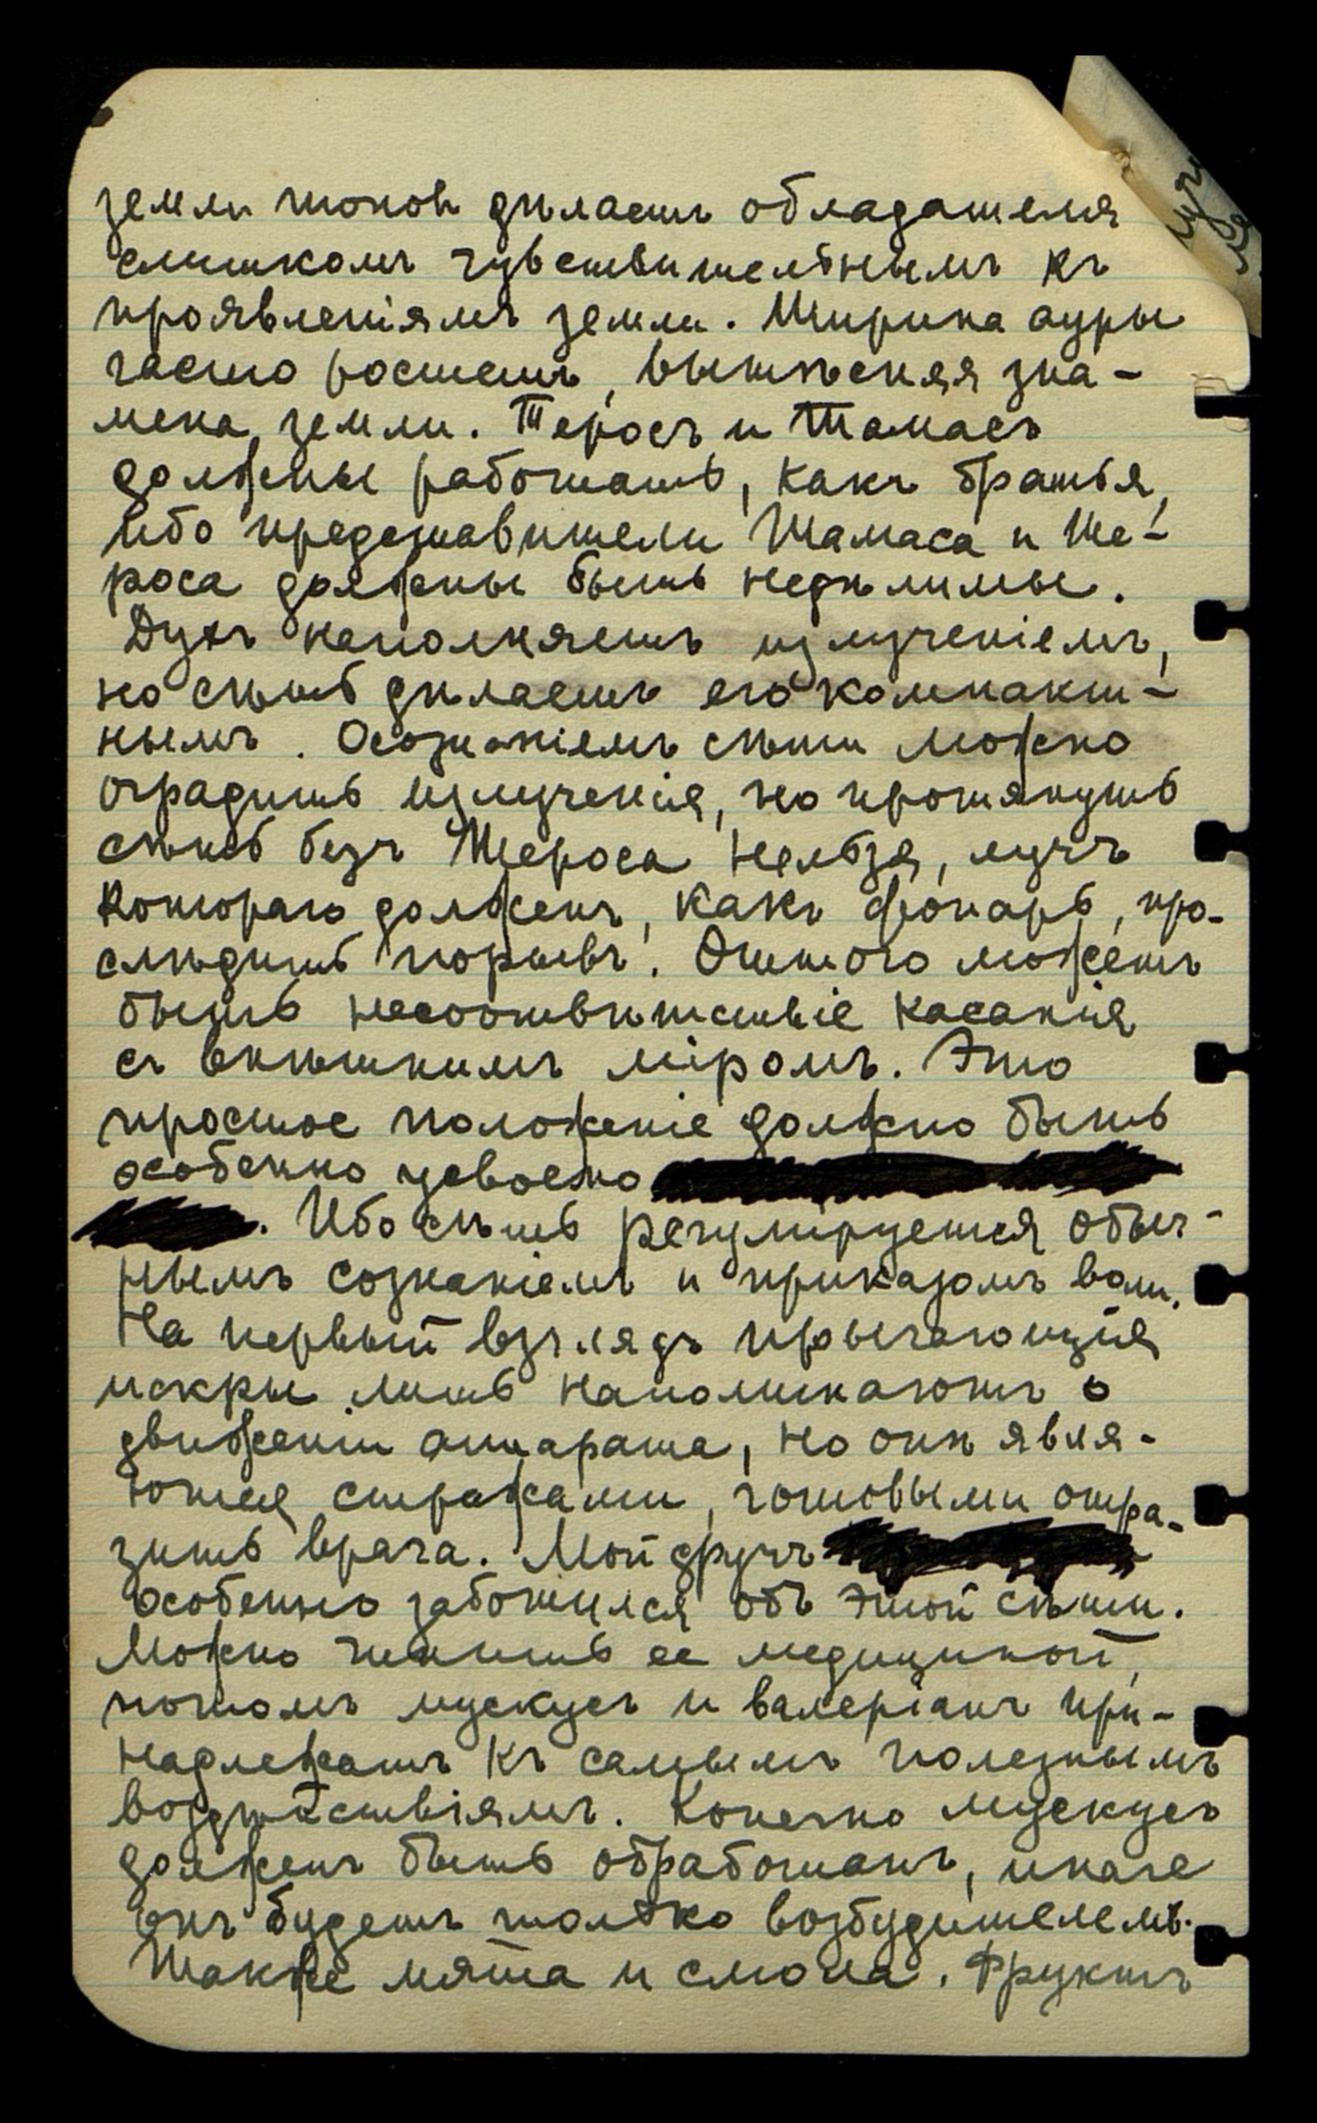 земли токовъ дѣлаетъ обладателя
слишкомъ чувствительнымъ къ
проявленіямъ земли. Ширина ауры
часто ростетъ, вытѣсняя зна-
мена земли. Теросъ и Тамасъ
должны работать, какъ братья,
ибо представители Тамаса и Те-
роса должны быть недѣлимы.
Духъ наполняетъ излученіемъ,
но сѣть дѣлаетъ его компакт-
нымъ. Осознаніемъ сѣти можно
оградить излученія, но протянуть
сѣть безъ Тероса нельзя, лучъ
котораго долженъ, какъ фонарь, про-
слѣдить порывъ. Оттого можетъ
быть несоотвѣтствіе касанія
съ внѣшнимъ міромъ. Это
простое положеніе должно быть
особенно усвоено
. Ибо сѣть регулируется обыч-
нымъ сознаніемъ и приказомъ воли.
На первый взглядъ прыгающія
искры лишь напоминаютъ о
движеніи аппарата, но онѣ явля-
ются стражами, готовыми отра-
зить врага. Мой другъ
особенно заботился объ этой сѣти.
Можно чинить ее медициной,
потомъ мускусъ и валеріанъ при-
надлежатъ къ самымъ полезнымъ
воздѣйствіямъ. Конечно мускусъ
долженъ быть обработанъ, иначе
онъ будетъ только возбудителемъ.
Также мята и смола. Фруктъ